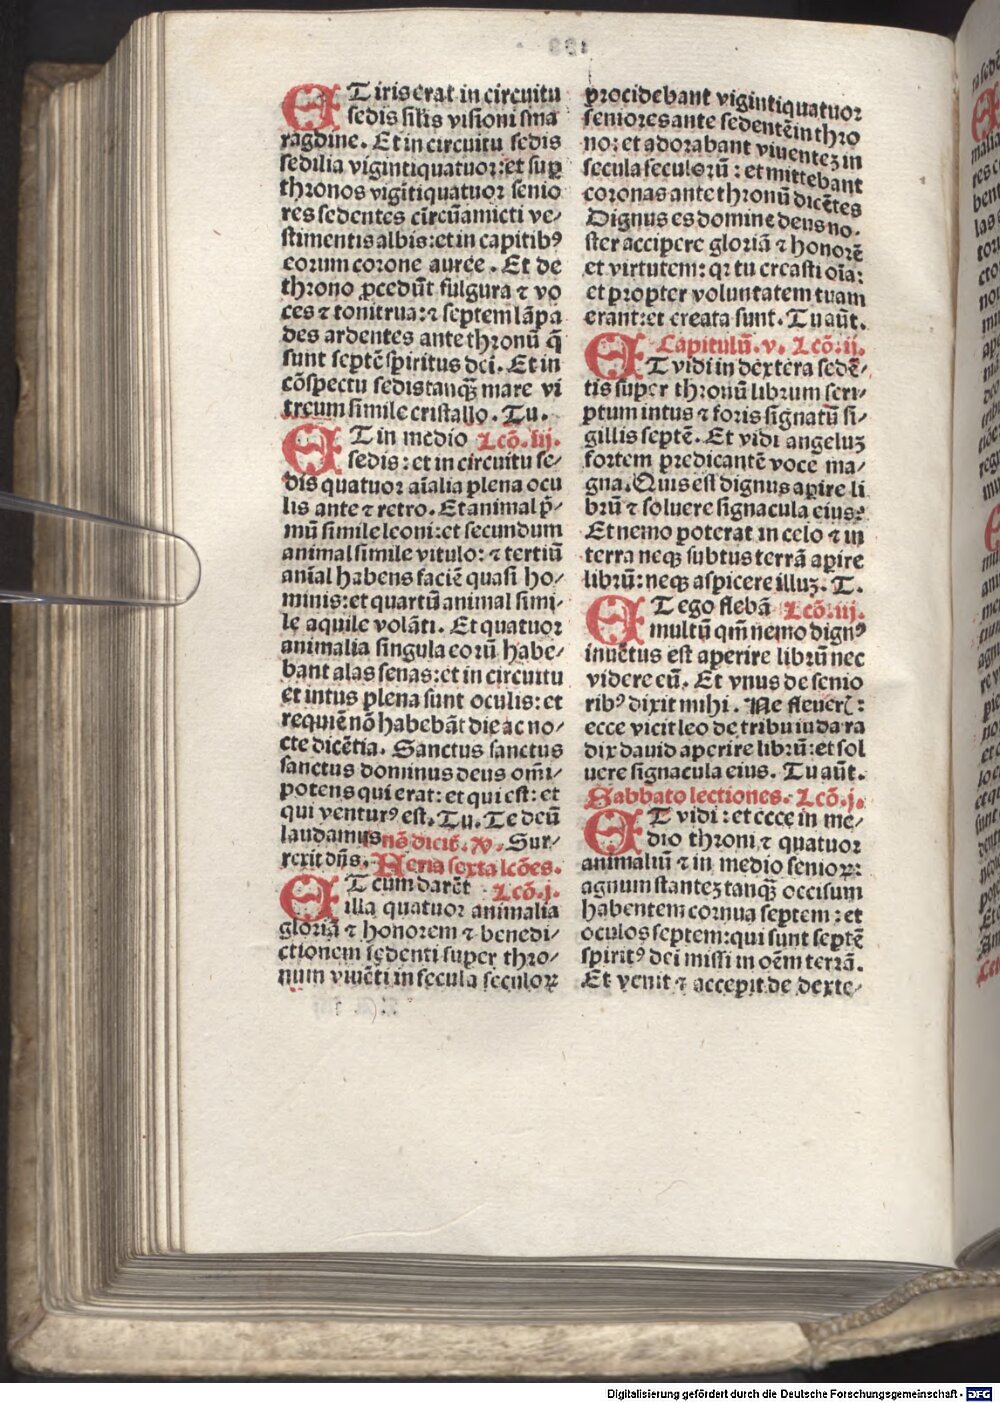 ET iris erat in circuitu
sedis silis visioni sma
ragdine. Et in circuitu sedis
sedilia vigintiquatuor: et suꝑ
thronos vigĩtiquatuor senio
res sedentes cĩrcũamicti ve⸗
stimentis albis: et in capitibꝰ
eorum corone auree. Et de
throno ꝓcedũt fulgura ⁊ vo
ces ⁊ tonitrua: ⁊ septem lãpa
des ardentes ante thronũ q̃
sunt septẽ spiritus dei. Et in
cõspectu sedis tanqꝫ mare vi
treum simile cristallo. Tu.
ET in medio Lcõ. iij.
sedis: et in circuitu se⸗
dis quatuor aĩalia plena ocu
lis ante ⁊ retro. Et animal p̃⸗
mũ simile leoni: et secundum
animal simile vitulo: ⁊ tertiũ
anĩal habens faciẽ quasi ho⸗
minis: et quartũ animal simi⸗
le aquile volãti. Et quatuor
animalia singula eorũ habe⸗
bant alas senas: et in circuitu
et intus plena sunt oculis: et
requiẽ nõ habebãt die ac no⸗
cte dicẽtia. Sanctus sanctus
sanctus dominus deus om̃i⸗
potens qui erat: et qui est: et
qui venturꝰ est. Tu. Te deũ
laudamus nõ dicit̃. ꝟ. Sur⸗
rexit dñs. Feria sexta lcões.
ET cum darẽt Lcõ. j.
illa quatuor animalia
gloriã ⁊ honorem ⁊ benedi⸗
ctionem sedenti super thro⸗
num viuẽti in secula seculoꝝ
procidebant vigintiquatuor
seniores ante sedentẽ in thro
no: et adorabant viuenteꝫ in
secula seculorũ: et mittebant
coronas ante thronũ dicẽtes
Dignus es domine deus no⸗
ster accipere gloriã ⁊ honorẽ
et virtutem: qꝛ tu creasti oĩa:
et propter voluntatem tuam
erant: et creata sunt. Tu aũt.
Capitulũ. v. Lcõ. ij.
ET vidi in dextera sedẽ⸗
tis super thronũ librum scri⸗
ptum intus ⁊ foris signatũ si⸗
gillis septẽ. Et vidi angeluꝫ
fortem predicantẽ voce ma⸗
gna. Quis est dignus apire li
brũ ⁊ soluere signacula eius?
Et nemo poterat in celo ⁊ in
terra neqꝫ subtus terrã apire
librũ: neqꝫ aspicere illuꝫ. T.
ET ego flebã Lcõ. iij.
multũ qm̃ nemo dignꝰ
inuẽtus est aperire librũ nec
videre eũ. Et vnus de senio
ribꝰ dixit mihi. Ne fleueris:
ecce vicit leo de tribu iuda ra
dix dauid aperire librũ: et sol
uere signacula eius. Tu aũt.
Sabbato lectiones. Lcõ. j.
ET vidi: et ecce in me⸗
dio throni ⁊ quatuor
animaliũ ⁊ in medio senioꝝ:
agnum stanteꝫ tanqꝫ occisum
habentem cornua septem: et
oculos septem: qui sunt septẽ
spiritꝰ dei missi in oẽm terrã.
Et venit ⁊ accepit de dexte⸗
Digitalisierung gefördert durch die Deutsche Forschungsgemeinschaft - DFG